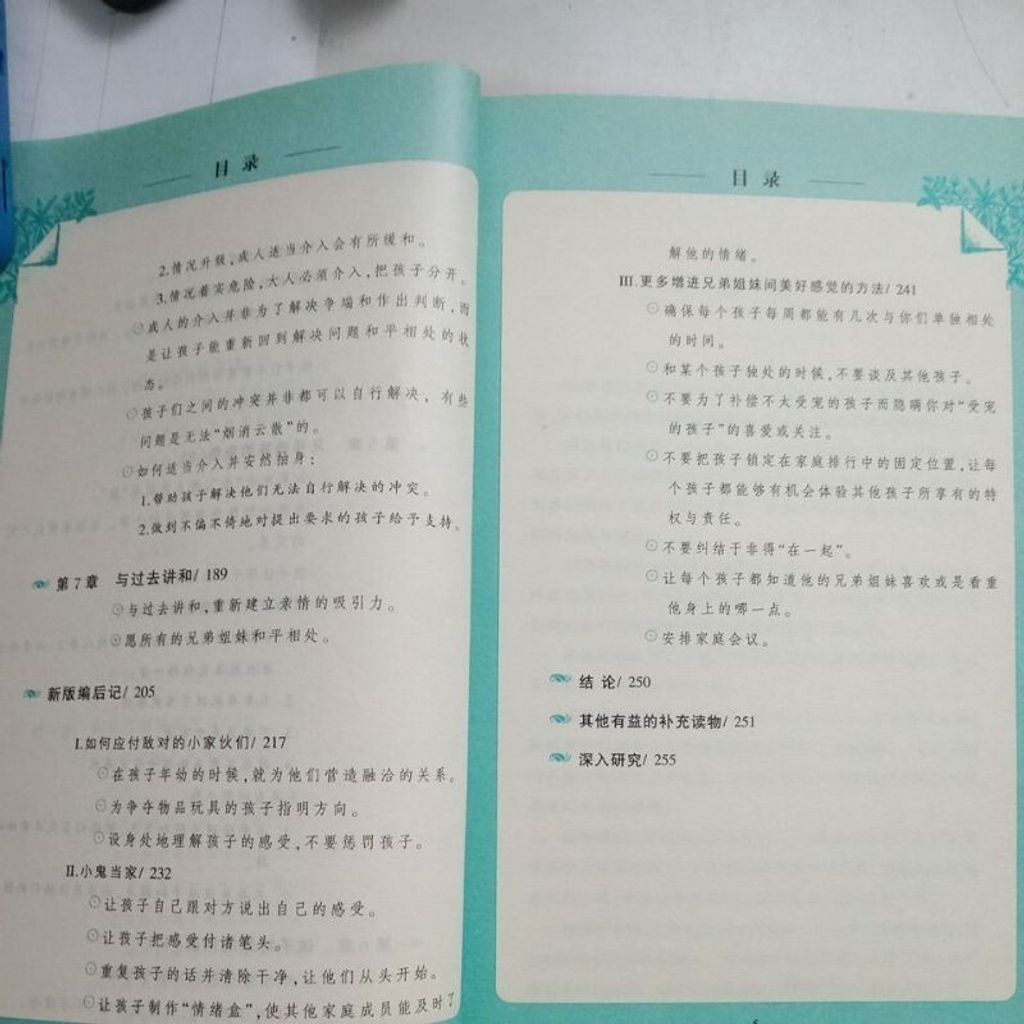 目 录
2.情况升级,成人适当介入会有所缓和。
3.情况着实危险,大人必须介入,把孩子分开。
⊙成人的介入并非为了解决争端和作出判断,而
是让孩子能重新回到解决问题和平相处的状
态。
⊙孩子们之间的冲突并非都可以自行解决，有些
问题是无法“烟消云散”的。
⊙如何适当介入并安然抽身:
1.帮助孩子解决他们无法自行解决的冲突。
2.做到不偏不倚地对提出要求的孩子给予支持。
第7章 与过去讲和/ 189
⊙与过去讲和,重新建立亲情的吸引力。
⊙愿所有的兄弟姐妹和平相处。
新版编后记/ 205
I.如何应付敌对的小家伙们/ 217
⊙在孩子年幼的时候,就为他们营造融洽的关系。
⊙为争夺物品玩具的孩子指明方向。
⊙设身处地理解孩子的感受,不要惩罚孩子。
II.小鬼当家/ 232
⊙让孩子自己跟对方说出自己的感受。
⊙让孩子把感受付诸笔头。
⊙重复孩子的话并清除干净,让他们从头开始。
⊙让孩子制作“情绪盒”,使其他家庭成员能及时了
目 录
解他的情绪。
III.更多增进兄弟姐妹间美好感觉的方法/ 241
⊙确保每个孩子每周都能有几次与你们单独相处
的时间。
⊙和某个孩子独处的时候,不要谈及其他孩子。
⊙不要为了补偿不太受宠的孩子而隐瞒你对“受宠
的孩子”的喜爱或关注。
⊙不要把孩子锁定在家庭排行中的固定位置,让每
个孩子都能够有机会体验其他孩子所享有的特
权与责任。
⊙不要纠结于非得“在一起”。
⊙让每个孩子都知道他的兄弟姐妹喜欢或是看重
他身上的哪一点。
⊙安排家庭会议。
结 论/ 250
其他有益的补充读物/ 251
深入研究/ 255